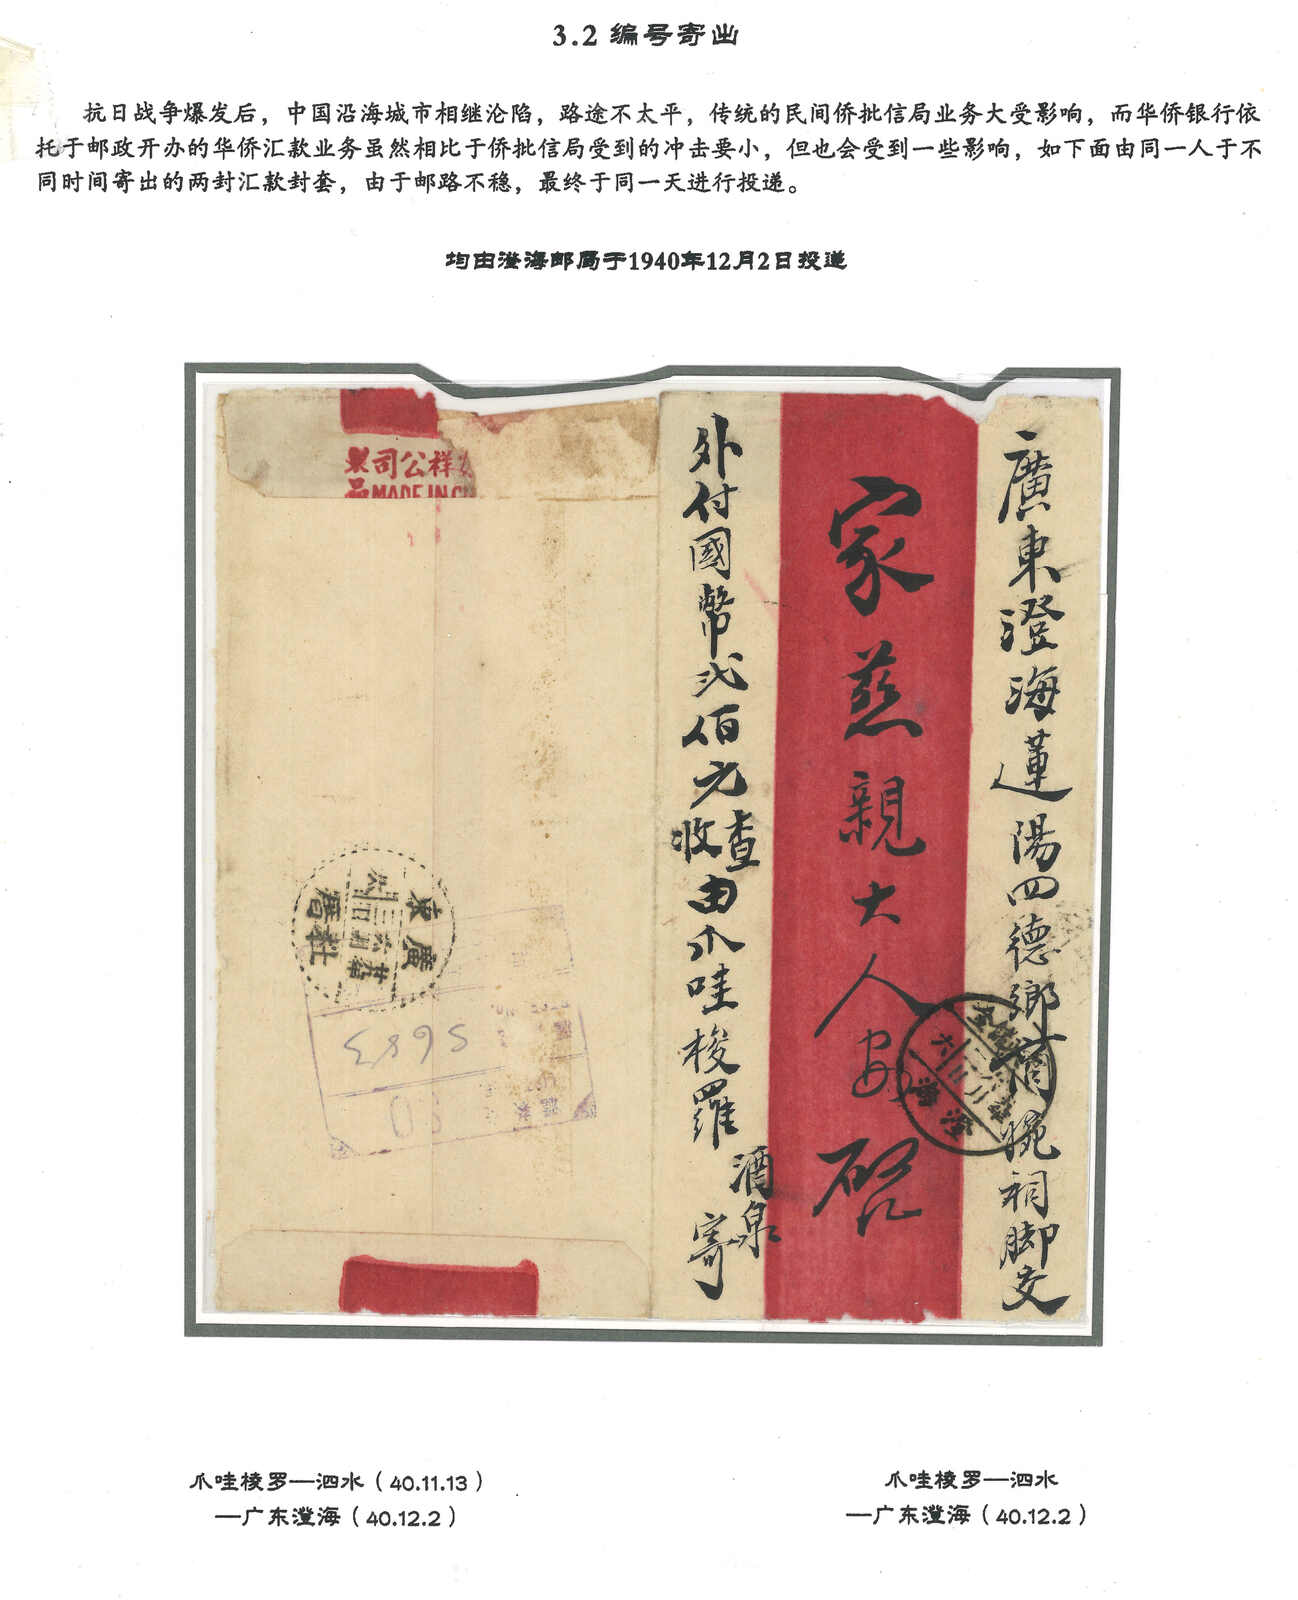 3.2 编号寄出
抗日战争爆发后，中国沿海城市相继沦陷，路途不太平，传统的民间侨批信局业务大受影响，而华侨银行依
托于邮政开办的华侨汇款业务虽然相比于侨批信局受到的冲击要小，但也会受到一些影响，如下面由同一人于不
同时间寄出的两封汇款封套，由于邮路不稳，最终于同一天进行投递。
均由澄海邮局于1940年12月2日投递
廣東澄海蓮陽四德鄉
祠脚交
家慈親大人安啓
外付國幣弍佰元查收由爪哇梭羅
酒泉
寄
製司公祥
品MADE IN CH
廣東
5683
03
爪哇棱罗—泗水（40.11.13）
—广东澄海（40.12.2）
爪哇棱罗—泗水
—广东澄海（40.12.2）